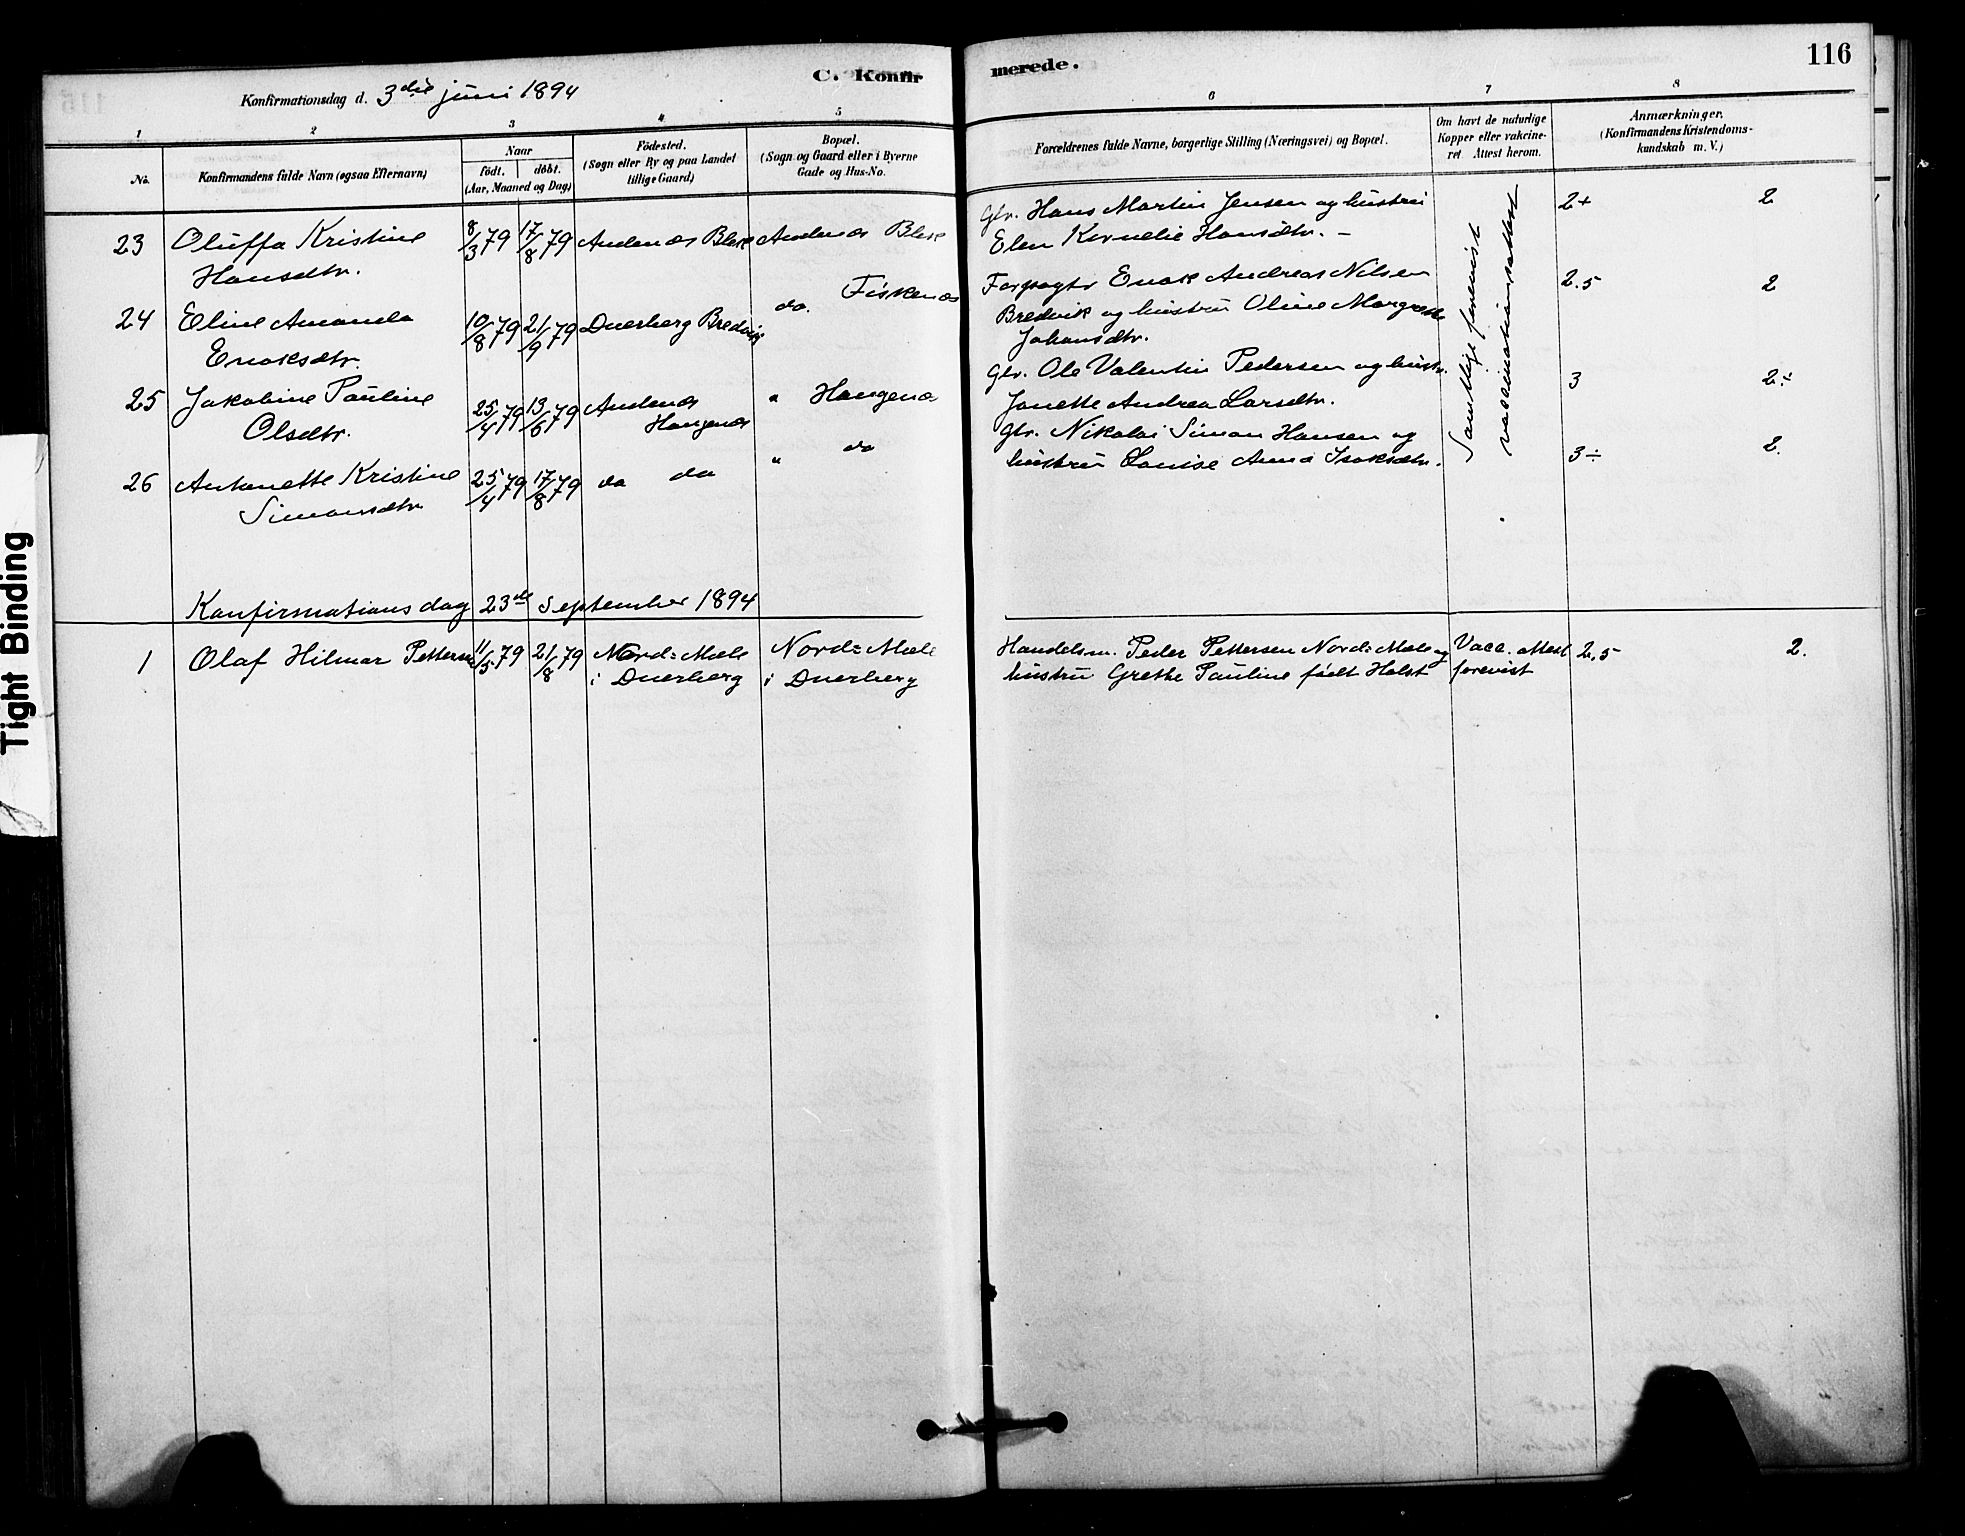 116
C. Konfirmerede.
Konfirmationsdag d. 3die juni 1894
1 2 3 4 5 6 7 8
No.
Konfirmandens fulde Navn (ogsaa Efternavn)
Naar
født. døbt.
(Aar, Maaned og Dag)
Fødested.
(Sogn eller By og paa Landet
tillige Gaard)
Bopæl.
(Sogn og Gaard eller i Byerne
Gade og Hus-No.
Forældrenes fulde Navne, borgerlige Stilling (Næringsvei) og Bopæl.
Om havt de naturlige
Kopper eller vakcine-
ret Attest herom.
Anmærkninger.
(Konfirmandens Kristendoms-
kundskab m. V.)
23 Oluffa Kristine 8/3 79 17/8 79 Andenes Blese Andenes Blese
Hansdtr.
Gbr. Hans Martin Jensen og hustru 2+ 2
Elen Kornelie Hansdtr. –
24 Eline Amanda 10/8 79 21/9 79 Dverberg Bredvik do. Fiskenes
Enoksdtr.
Forpagtr Enok Andreas Nilsen 2.5 2
Bredvik og hustru Oline Margrethe
Johansdtr.
25 Jakobine Pauline 25/4 79 13/6 79 Andenes " Haugenes
Olsdtr. Haugenes
Gbr. Ole Valentin Pedersen og hustr. 3 2÷
Janette Andrea Larsdtr.
26 Antonette Kristine 25/4 79 17/8 79 do do " do
Simonsdtr
Gbr. Nikolai Simon Hansen og
hustru Louise Anna Isaksdtr. 3÷ 2.
Samtlige forevist
vaccinationsattest
Konfirmationsdag 23de September 1894
1 Olaf Hilmar Pettersen 11/5 79 21/8 79 Nord=Mele Nord=Mele
i Dverberg i Dverberg
Handelsm. Peder Pettersen Nord=Mele og Vacc. attest 2,5 2.
hustru Grethe Pauline født Holst forevist
Tight Binding